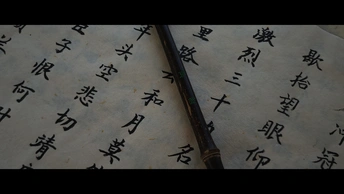 冲冠
歇抬望眼仰
激烈三十
名
里路
和月莫
头空悲切靖
子恨何